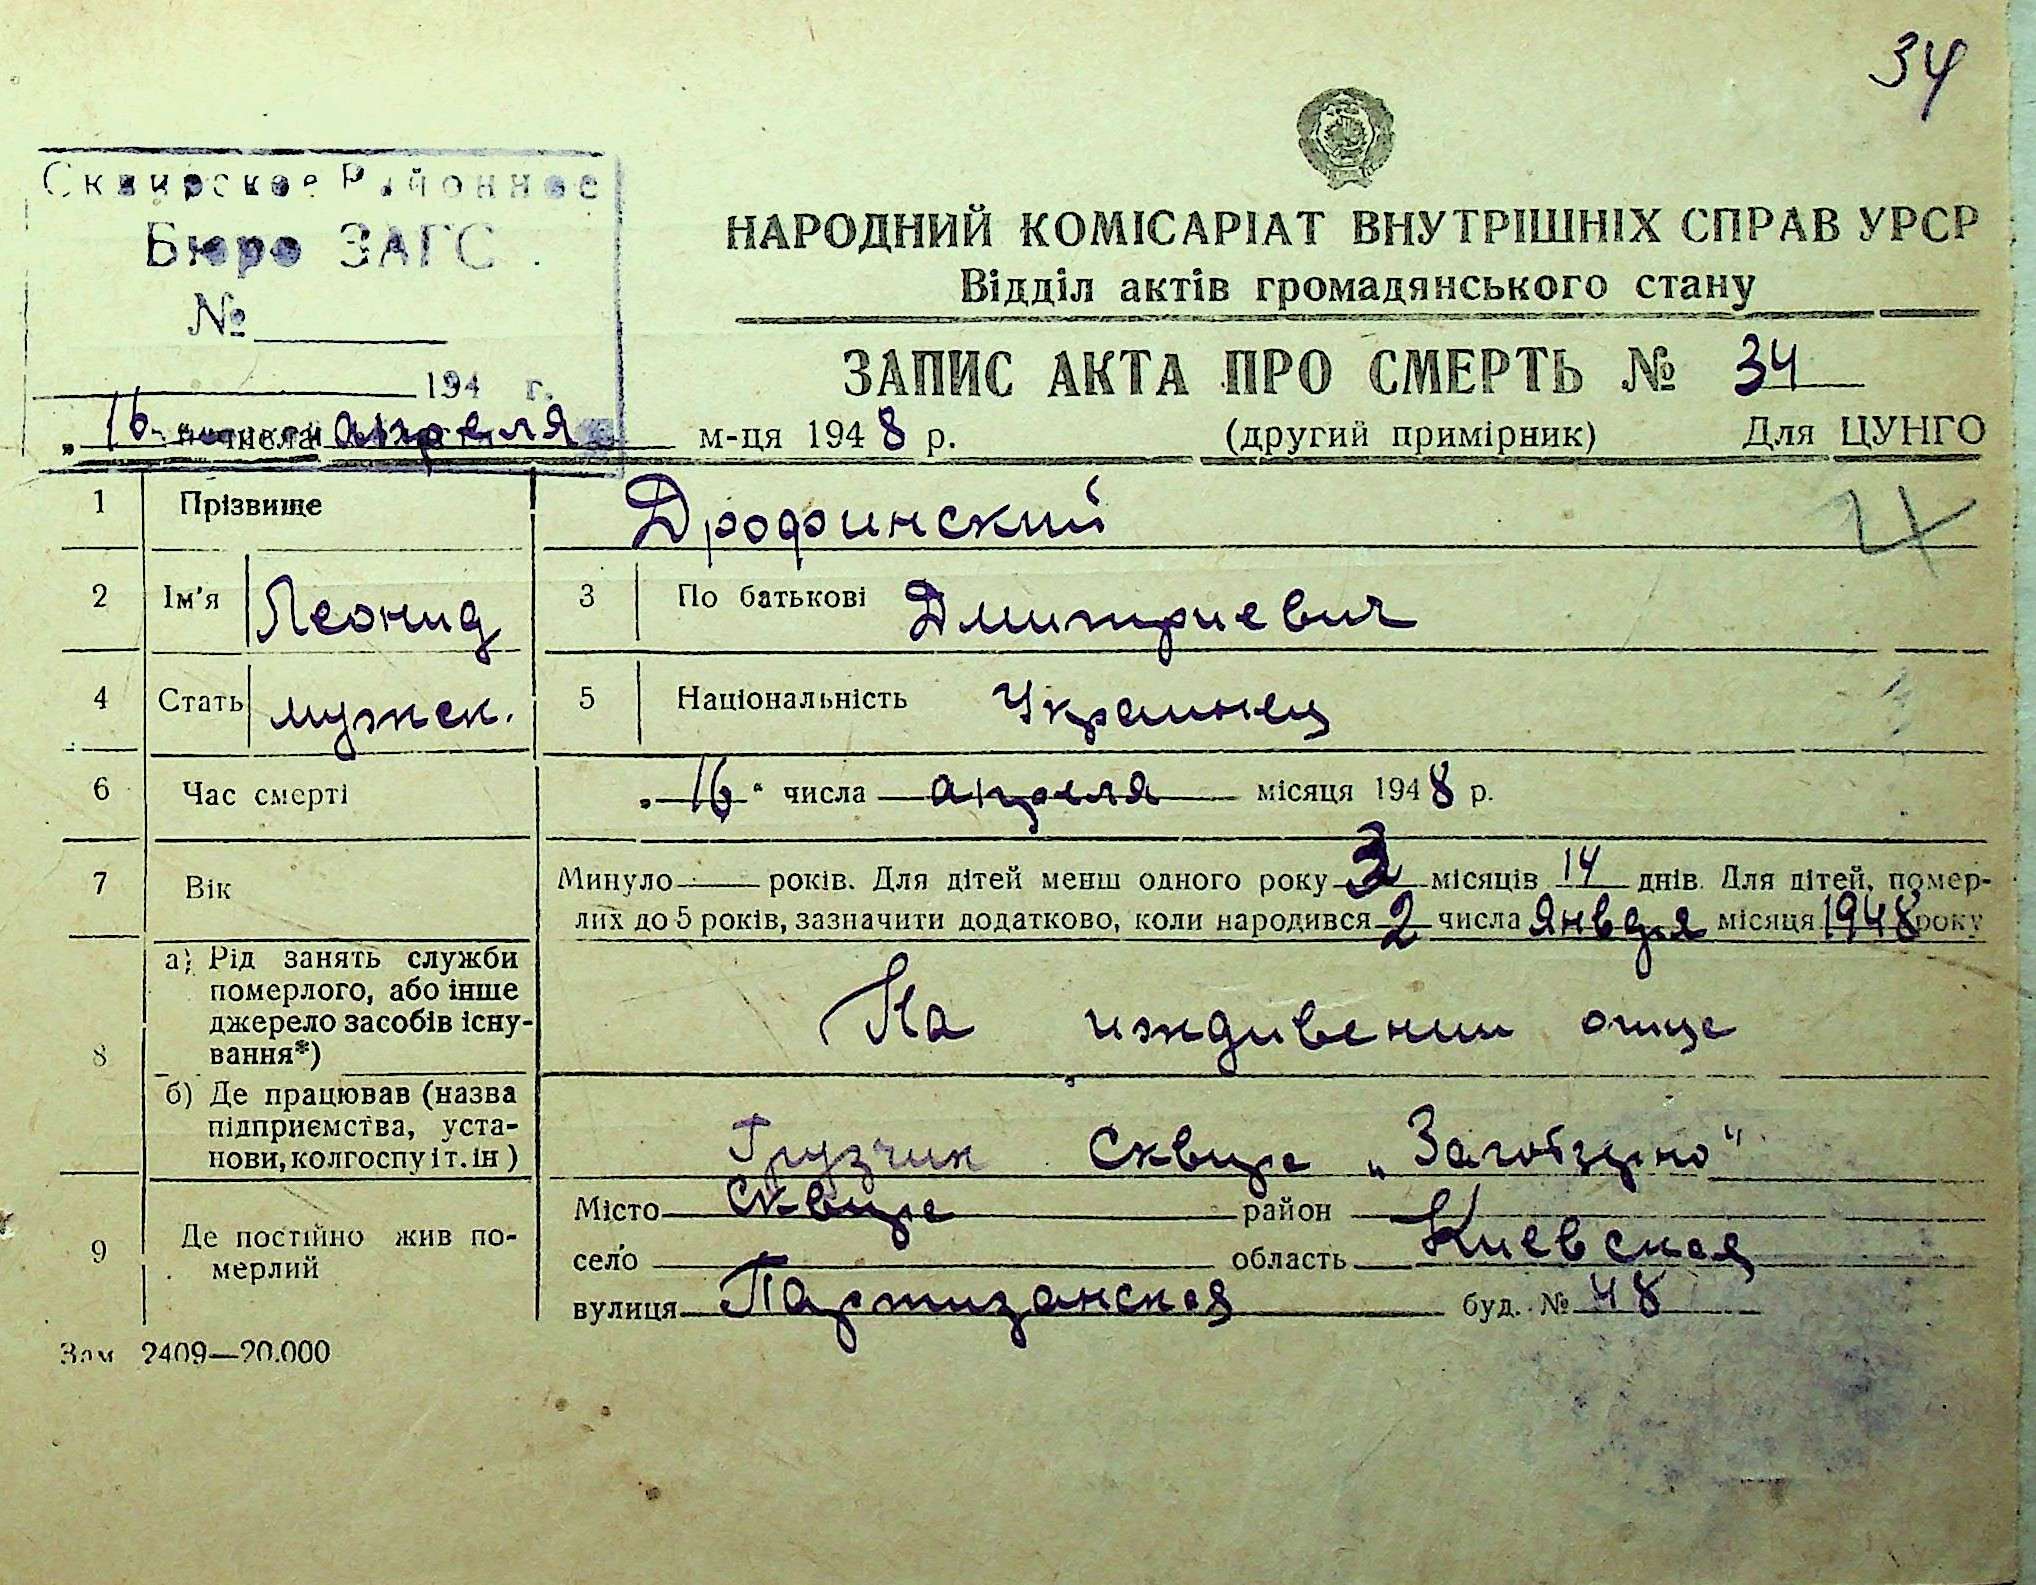 34
Сквирское Районное
Бюро ЗАГС
№
194 г.
НАРОДНИЙ КОМІСАРІАТ ВНУТРІШНІХ СПРАВ УРСР
Відділ актів громадянського стану
ЗАПИС АКТА ПРО СМЕРТЬ № 34
„16 числа апреля м-ця 1948 р. (другий примірник) Для ЦУНГО
1 Прізвище Дрофинский
2 Ім'я Леонид 3 По батькові Дмитриевич
4 Стать мужск. 5 Національність Украинец
6 Час смерті „16“ числа апреля місяця 1948 р.
7 Вік Минуло — років. Для дітей менш одного року 3 місяців 14 днів. Для дітей, помер-
лих до 5 років, зазначити додатково, коли народився 2 числа января місяця 1948 року
8 а) Рід занять служби
померлого, або інше
джерело засобів існу-
вання*)
На иждивении отца
б) Де працював (назва
підприємства, уста-
нови, колгоспу і т. ін)
Грузчик Сквира „Заготзерно“
9 Де постійно жив по-
мерлий
Місто Сквира район —
село — область Киевская
вулиця Партизанская буд. № 48
Зам 2409—20.000